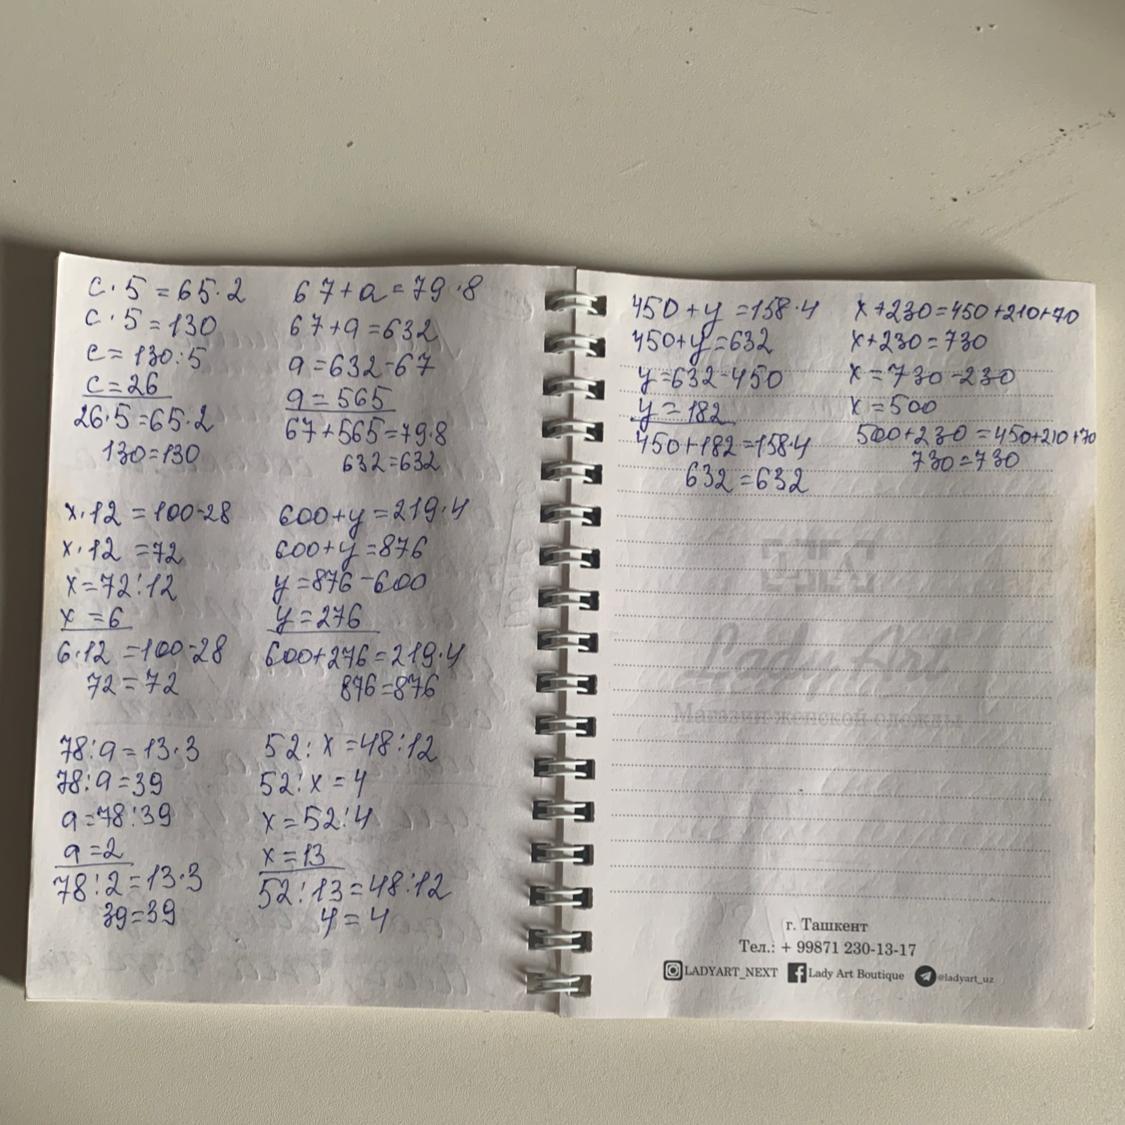 c·5=65·2
c·5=130
c=130:5
c=26
26·5=65·2
130=130
67+a=79·8
67+a=632
a=632-67
a=565
67+565=79·8
632=632
x·12=100-28
x·12=72
x=72:12
x=6
6·12=100-28
72=72
600+y=219·4
600+y=876
y=876-600
y=276
600+276=219·4
876=876
78:a=13·3
78:a=39
a=78:39
a=2
78:2=13·3
39=39
52:x=48:12
52:x=4
x=52:4
x=13
52:13=48:12
4=4
450+y=158·4
450+y=632
y=632-450
y=182
450+182=158·4
632=632
x+230=450+210+70
x+230=730
x=730-230
x=500
500+230=450+210+70
730=730
Lady Art
Магазин женской одежды
г. Ташкент
Тел.: + 99871 230-13-17
LADYART_NEXT Lady Art Boutique @ladyart_uz